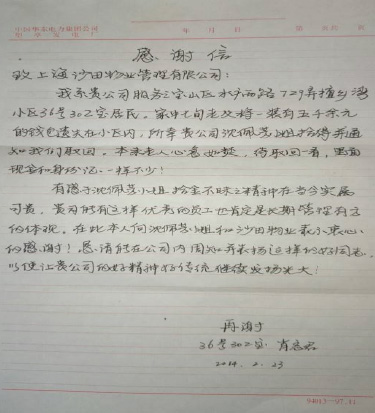 年 月 日
感谢信
致上海沙田物业管理有限公司：
我系贵公司服务宝山区水产西路729弄恒乡湾
小区36号302室居民。家中七旬老父将一装有五千余元
的钱包遗失在小区内，所幸贵公司沈佩芬小姐拾得并通
知我们取回。本来老人心急如焚，待取回一看，里面
现金和身份证一样不少！
有感于沈佩芬小姐拾金不昧之精神在当今实属
可贵，贵司能有这样优秀的员工也肯定是长期管理有方
的体现。在此本人向沈佩芬小姐和沙田物业表示衷心
的感谢！恳请能在公司内周知并表扬这样的好同志，
以便让贵公司的好精神好传统继续发扬光大！
再谢！
36号302室 肖
2014.2.23